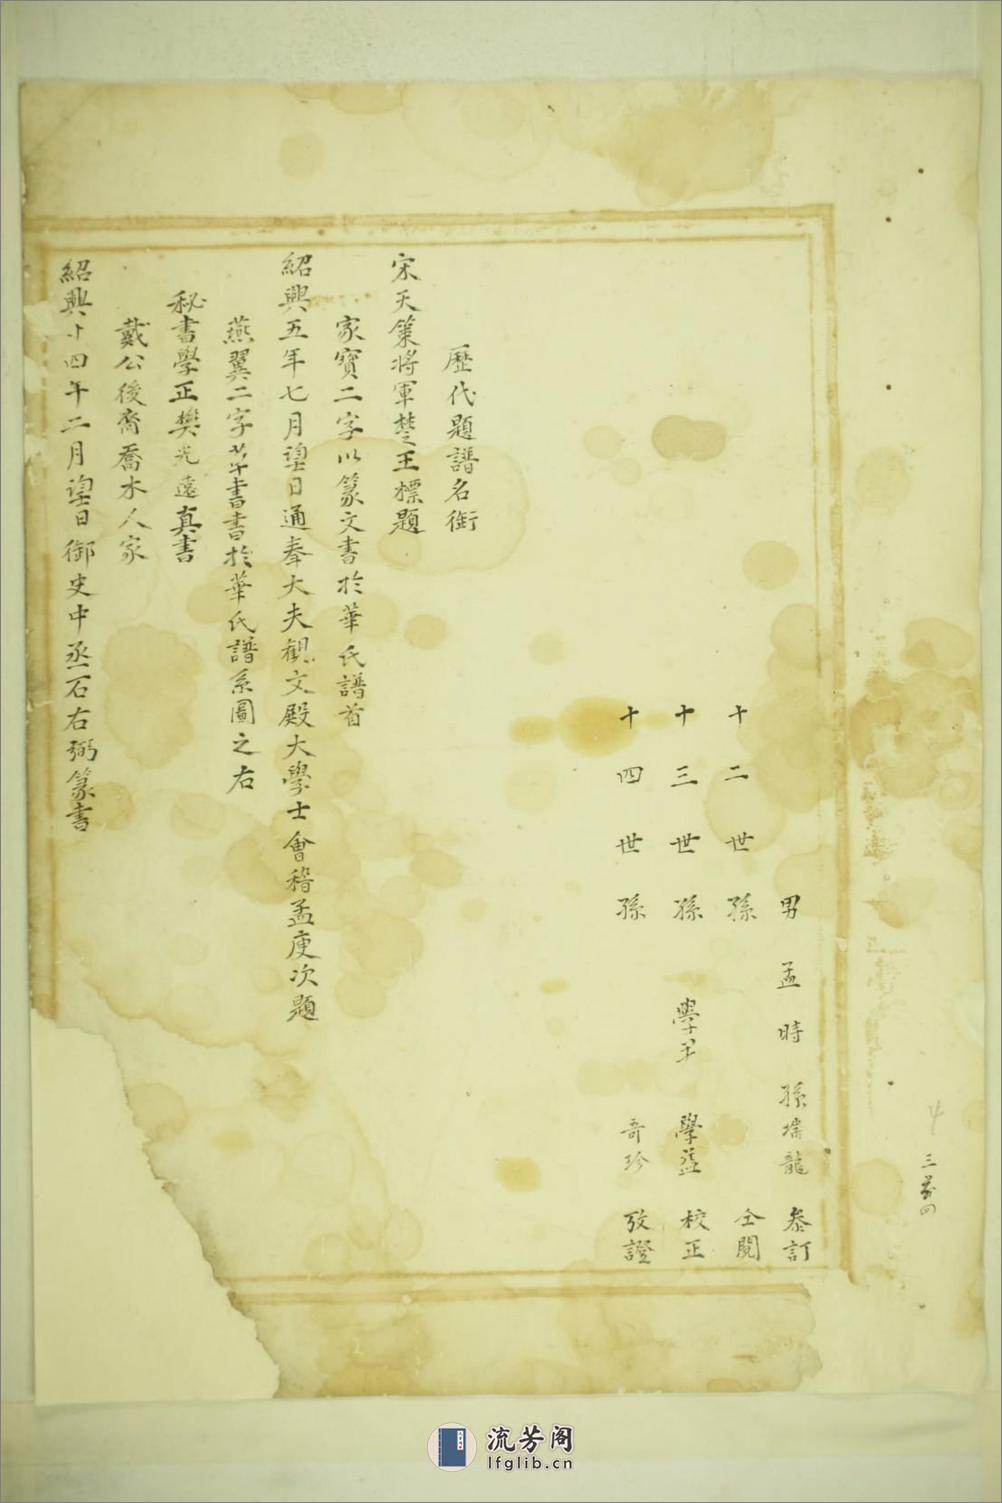 男孟時孫瑞龍叅訂
十二世孫仝閱
十三世孫學孚學益校正
十四世孫奇珍攷證
歷代題譜名銜
宋天策將軍楚王標題
家寶二字以篆文書於華氏譜首
紹興五年七月望日通奉大夫觀文殿大學士會稽孟庾次題
燕翼二字草書書於華氏譜系圖之右
秘書學正樊光遠真書
戴公後裔喬木人家
紹興十四年二月望日御史中丞石右弼篆書
三萬四
流芳阁
lfglib.cn